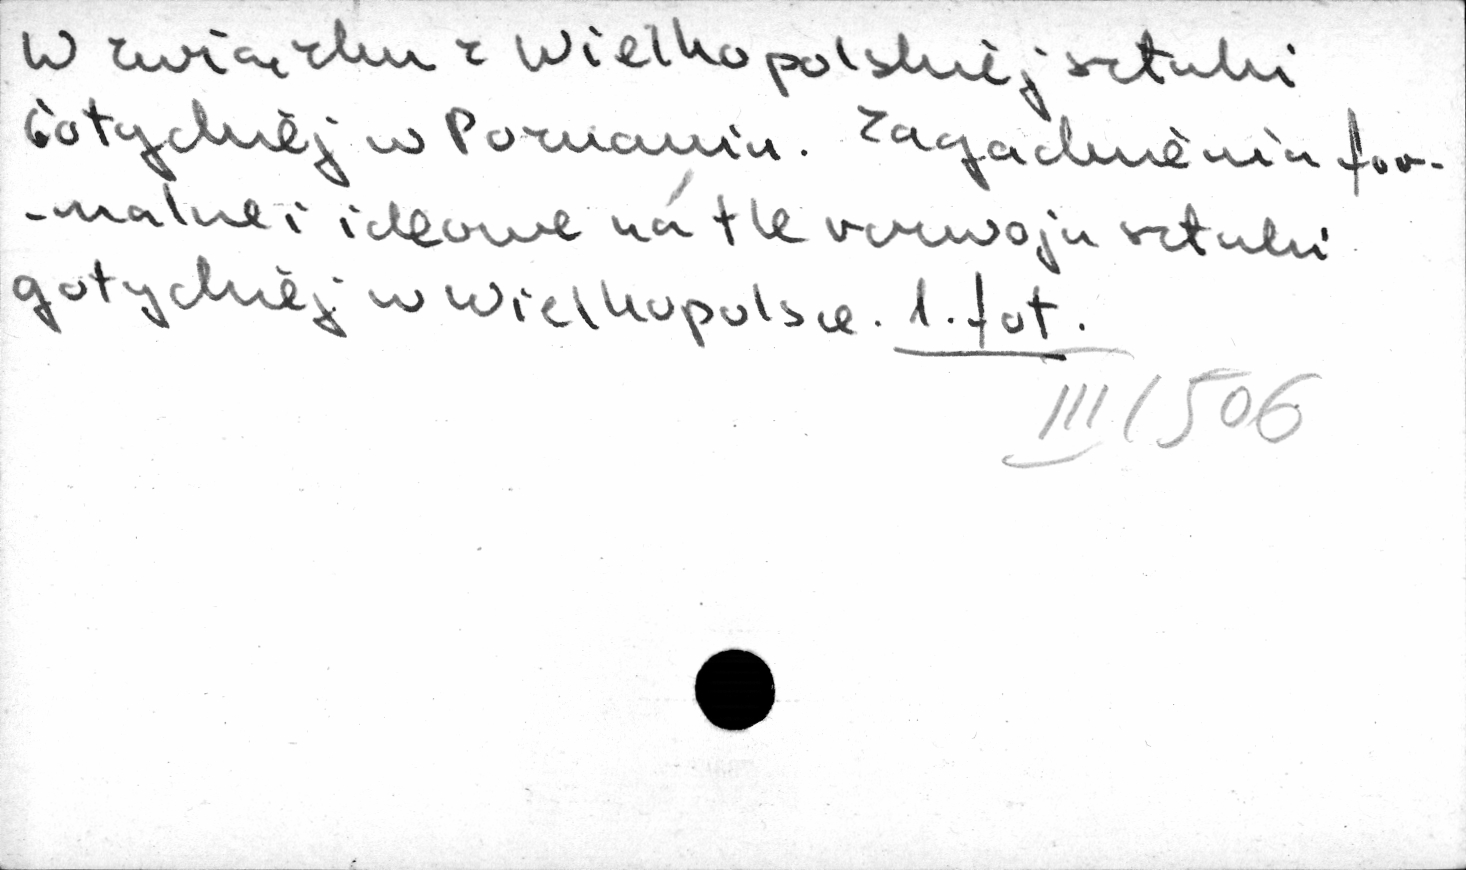 W związku z Wielkopolskiej sztuki
Gotyckiej w Poznaniu. Zagadnienia for-
-malne i ideowe na tle rozwoju sztuki
gotyckiej w Wielkopolsce. 1. fot.
III/506